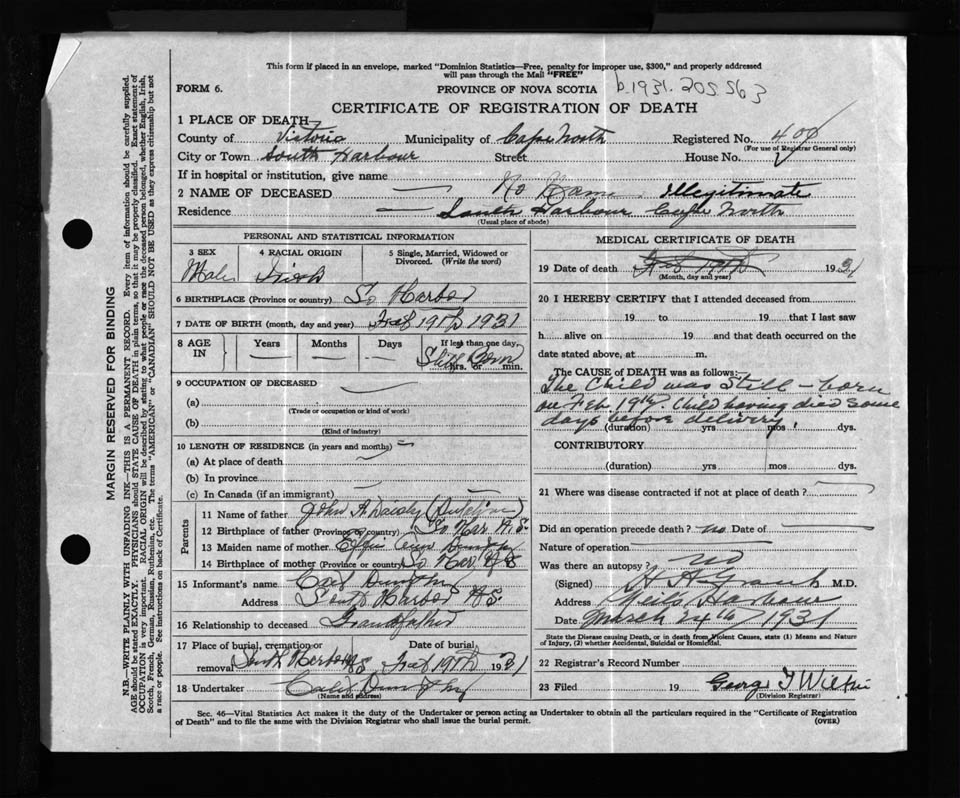 This form if placed in an envelope, marked "Dominion Statistics—Free, penalty for improper use, $300," and properly addressed
will pass through the Mail "FREE"
b.1931.205563
FORM 6.
PROVINCE OF NOVA SCOTIA
CERTIFICATE OF REGISTRATION OF DEATH
1 PLACE OF DEATH
County of Victoria Municipality of Cape North Registered No. 400
(For use of Registrar General only)
City or Town South Harbour Street House No.
If in hospital or institution, give name
2 NAME OF DECEASED No Name Illegitimate
Residence South Harbour Cape North
(Usual place of abode)
PERSONAL AND STATISTICAL INFORMATION
3 SEX 4 RACIAL ORIGIN 5 Single, Married, Widowed or
Divorced. (Write the word)
Male Irish
6 BIRTHPLACE (Province or country) So Harbor
7 DATE OF BIRTH (month, day and year) 19th 1931
8 AGE IN Years Months Days If less than one day,
Still Born hrs. or min.
9 OCCUPATION OF DECEASED
(a)
(Trade or occupation or kind of work)
(b)
(Kind of industry)
10 LENGTH OF RESIDENCE (in years and months)
(a) At place of death
(b) In province
(c) In Canada (if an immigrant)
Parents
11 Name of father John A
12 Birthplace of father (Province or country) So Har. N.S
13 Maiden name of mother Effie Ann
14 Birthplace of mother (Province or country) So Har. N.S
15 Informant's name
Address South Harbor N.S.
16 Relationship to deceased Grandfather
17 Place of burial, cremation or Date of burial,
removal South Harbor N.S 19th 1931
18 Undertaker
(Name and address)
MEDICAL CERTIFICATE OF DEATH
19 Date of death Feb 19th 1931
(Month, day and year)
20 I HEREBY CERTIFY that I attended deceased from
19 to 19 that I last saw
h alive on 19 and that death occurred on the
date stated above, at m.
The CAUSE of DEATH was as follows:
The Child was Still-born
on Feb 19th Child having died some
days before delivery
(duration) yrs mos dys.
CONTRIBUTORY
(duration) yrs mos dys.
21 Where was disease contracted if not at place of death?
Did an operation precede death? no Date of
Nature of operation
Was there an autopsy? no
(Signed) H A Grant M.D.
Address Neils Harbour
Date March 24th 1931
State the Disease causing Death, or in death from Violent Causes, state (1) Means and Nature
of Injury, (2) whether Accidental, Suicidal or Homicidal.
22 Registrar's Record Number
23 Filed 19 George F Wilkie
(Division Registrar)
Sec. 46—Vital Statistics Act makes it the duty of the Undertaker or person acting as Undertaker to obtain all the particulars required in the "Certificate of Registration
of Death" and to file the same with the Division Registrar who shall issue the burial permit.
(OVER)
MARGIN RESERVED FOR BINDING
N.B.—WRITE PLAINLY WITH UNFADING INK—THIS IS A PERMANENT RECORD. Every item of information should be carefully supplied.
AGE should be stated EXACTLY. PHYSICIANS should STATE CAUSE OF DEATH in plain terms, so that it may be properly classified. Exact statement of
OCCUPATION is very important. RACIAL ORIGIN will be described by stating to what people or race the deceased person belonged, whether English, Irish,
Scotch, French, German, Russian, Ruthenian, etc. The terms "AMERICAN" or "CANADIAN" SHOULD NOT BE USED as they express citizenship but not
a race or people. See instructions on back of Certificate.